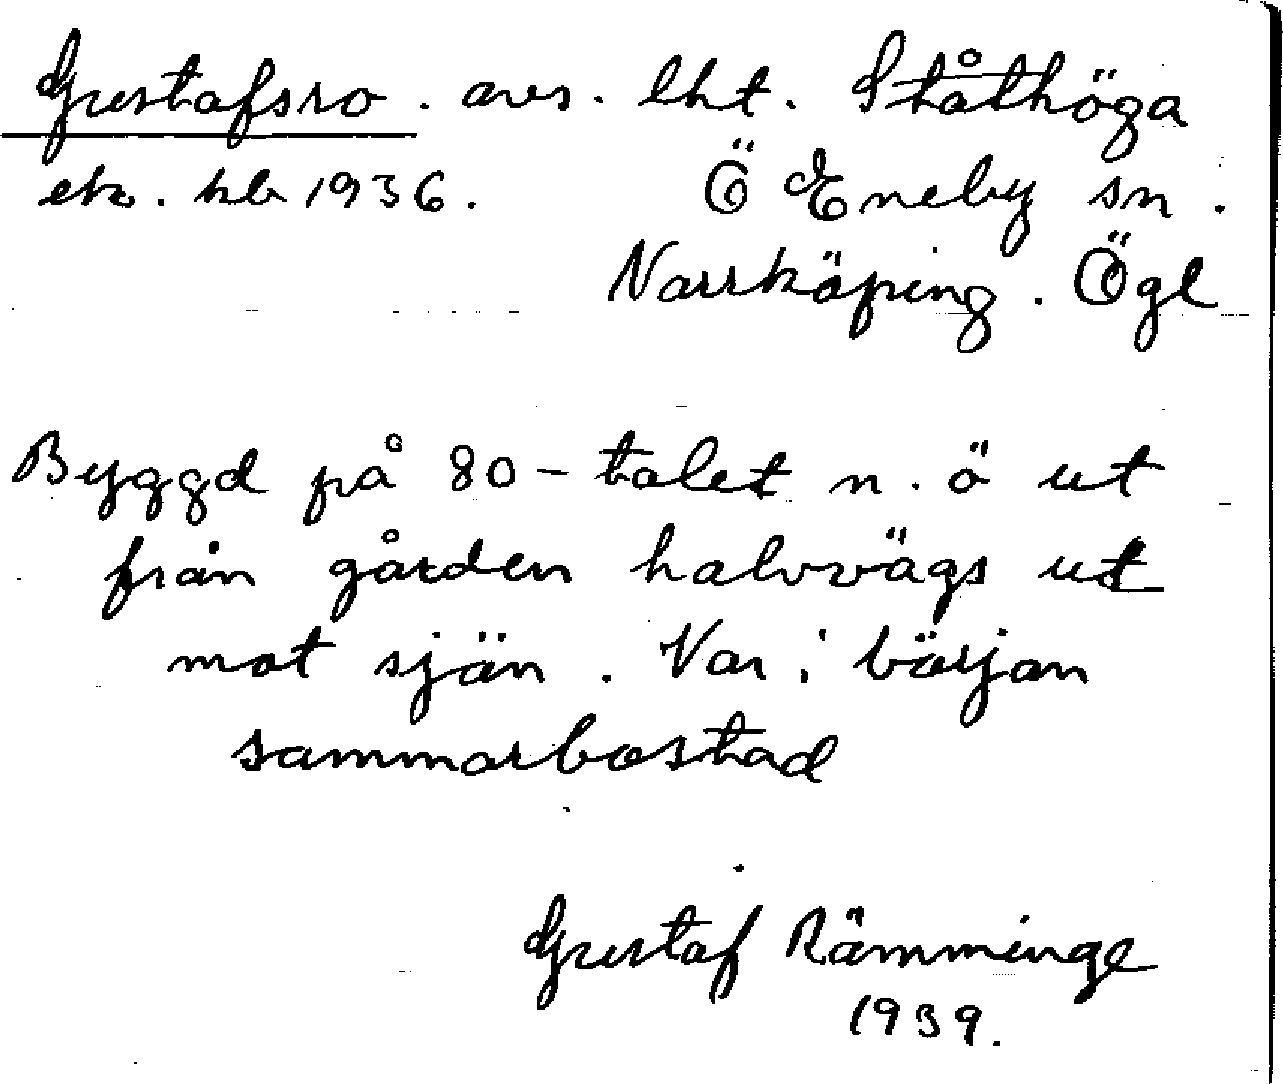 Gustafsro. avs. lht. Ståthöga
ek. kb 1936. Ö Eneby sn.
Norrköping. Ögl
Byggd på 80-talet n. ö ut
från gården halvvägs ut
mot sjön. Var i början
sommarbostad
Gustaf Römminge
1939.